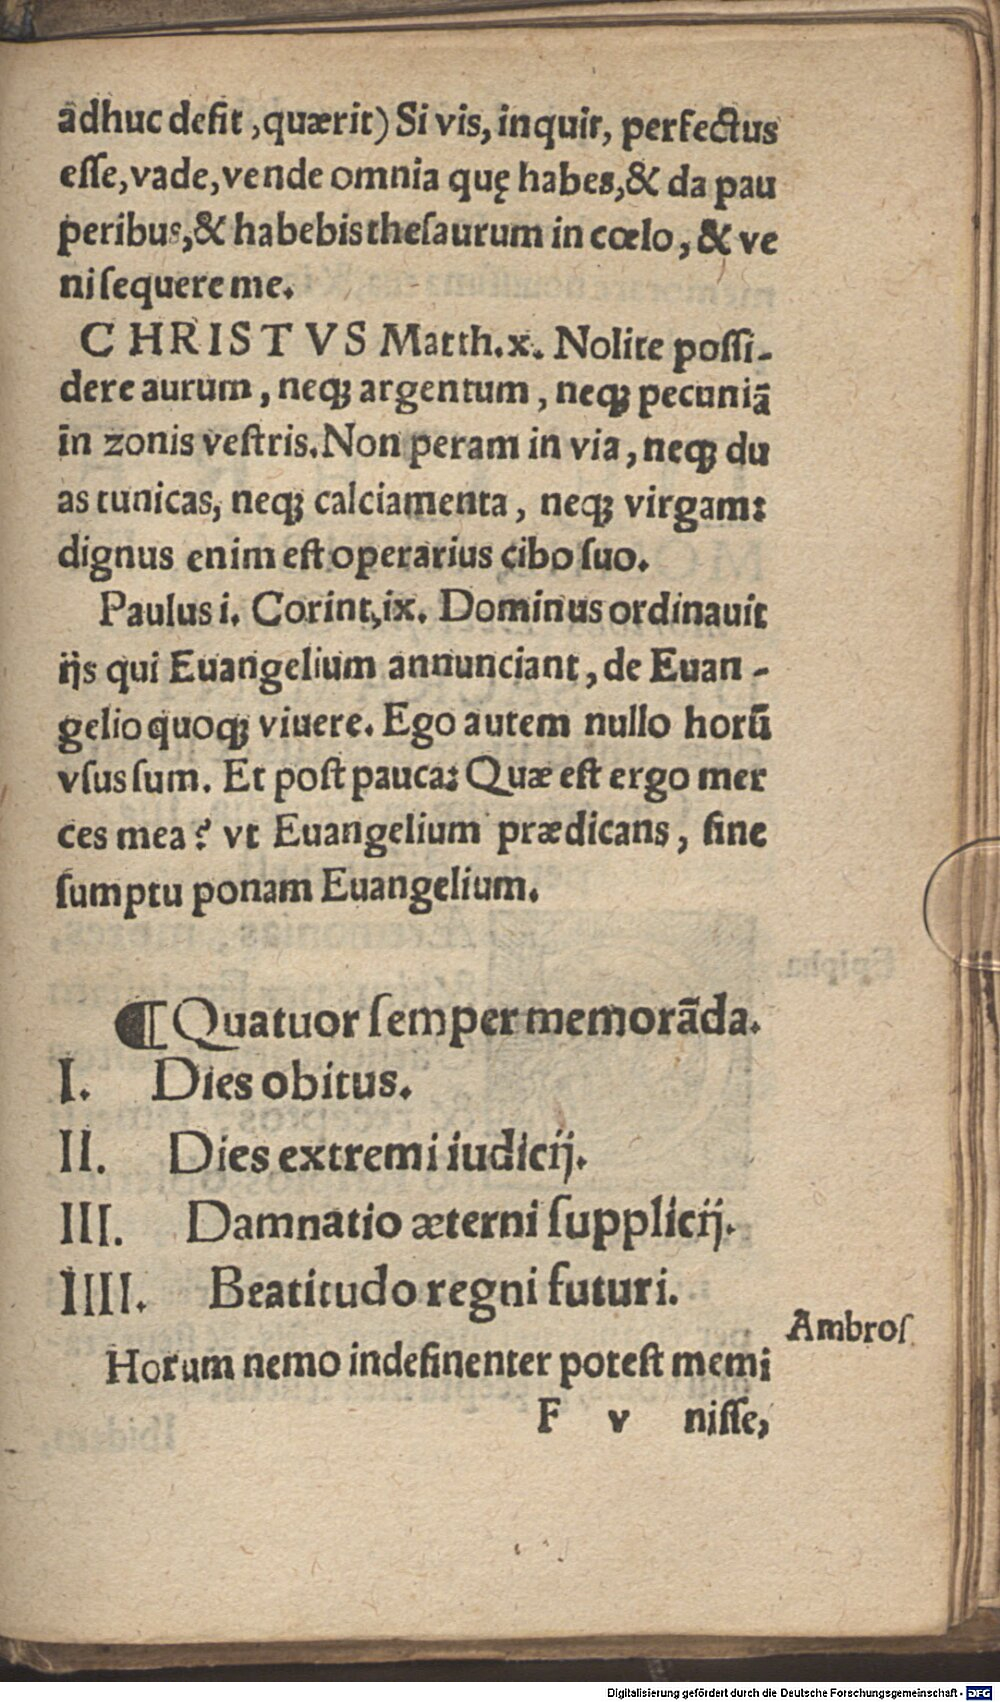 adhuc desit, quærit) Si vis, inquit, perfectus
esse, vade, vende omnia quę habes, & da pau
peribus, & habebis thesaurum in cœlo, & ve
ni sequere me.
CHRISTVS Matth. x. Nolite possi-
dere aurum, neqꝫ argentum, neqꝫ pecuniā
in zonis vestris. Non peram in via, neqꝫ du
as tunicas, neqꝫ calciamenta, neqꝫ virgam:
dignus enim est operarius cibo suo.
Paulus i. Corint, ix. Dominus ordinauit
ijs qui Euangelium annunciant, de Euan-
gelio quoqꝫ viuere. Ego autem nullo horū
vsus sum. Et post pauca: Quæ est ergo mer
ces mea? vt Euangelium prædicans, sine
sumptu ponam Euangelium.
¶ Quatuor semper memorāda.
I. Dies obitus.
II. Dies extremi iudicij.
III. Damnatio æterni supplicij.
IIII. Beatitudo regni futuri.
Ambros
Horum nemo indesinenter potest memi
F v nisse,
Digitalisierung gefördert durch die Deutsche Forschungsgemeinschaft - DFG